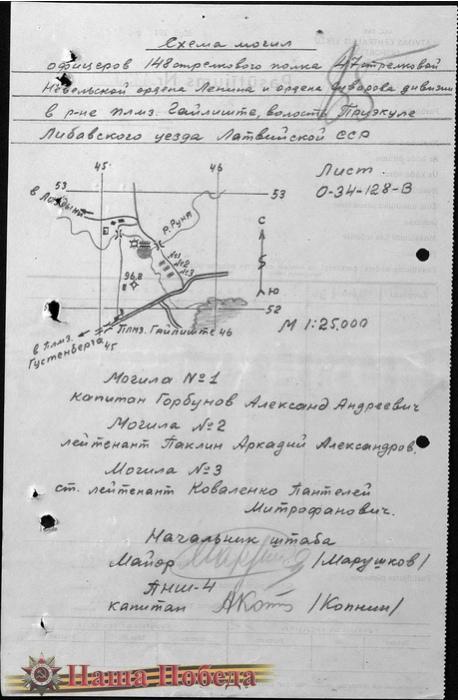 Схема могил
офицеров 148 стрелкового полка 47 стрелковой
Невельской ордена Ленина и ордена Суворова дивизии
в р-не плмз. Гайлиште, волость Приэкуле
Либавского уезда Латвийской ССР
Лист
О-34-128-В
45
46
53
53
р. Руня
№1
№2
№3
96,8
С
Ю
52
в плмз.
Густенберга
45
Плмз. Гайлиште 46
М 1:25.000
Могила №1
капитан Горбунов Александ Андреевич
Могила №2
лейтенант Паклин Аркадий Александров.
Могила №3
ст. лейтенант Коваленко Пантелей
Митрофанович.
Начальник штаба
Майор /Марушков/
ПНШ-4
капитан /Копнин/
Наша Победа